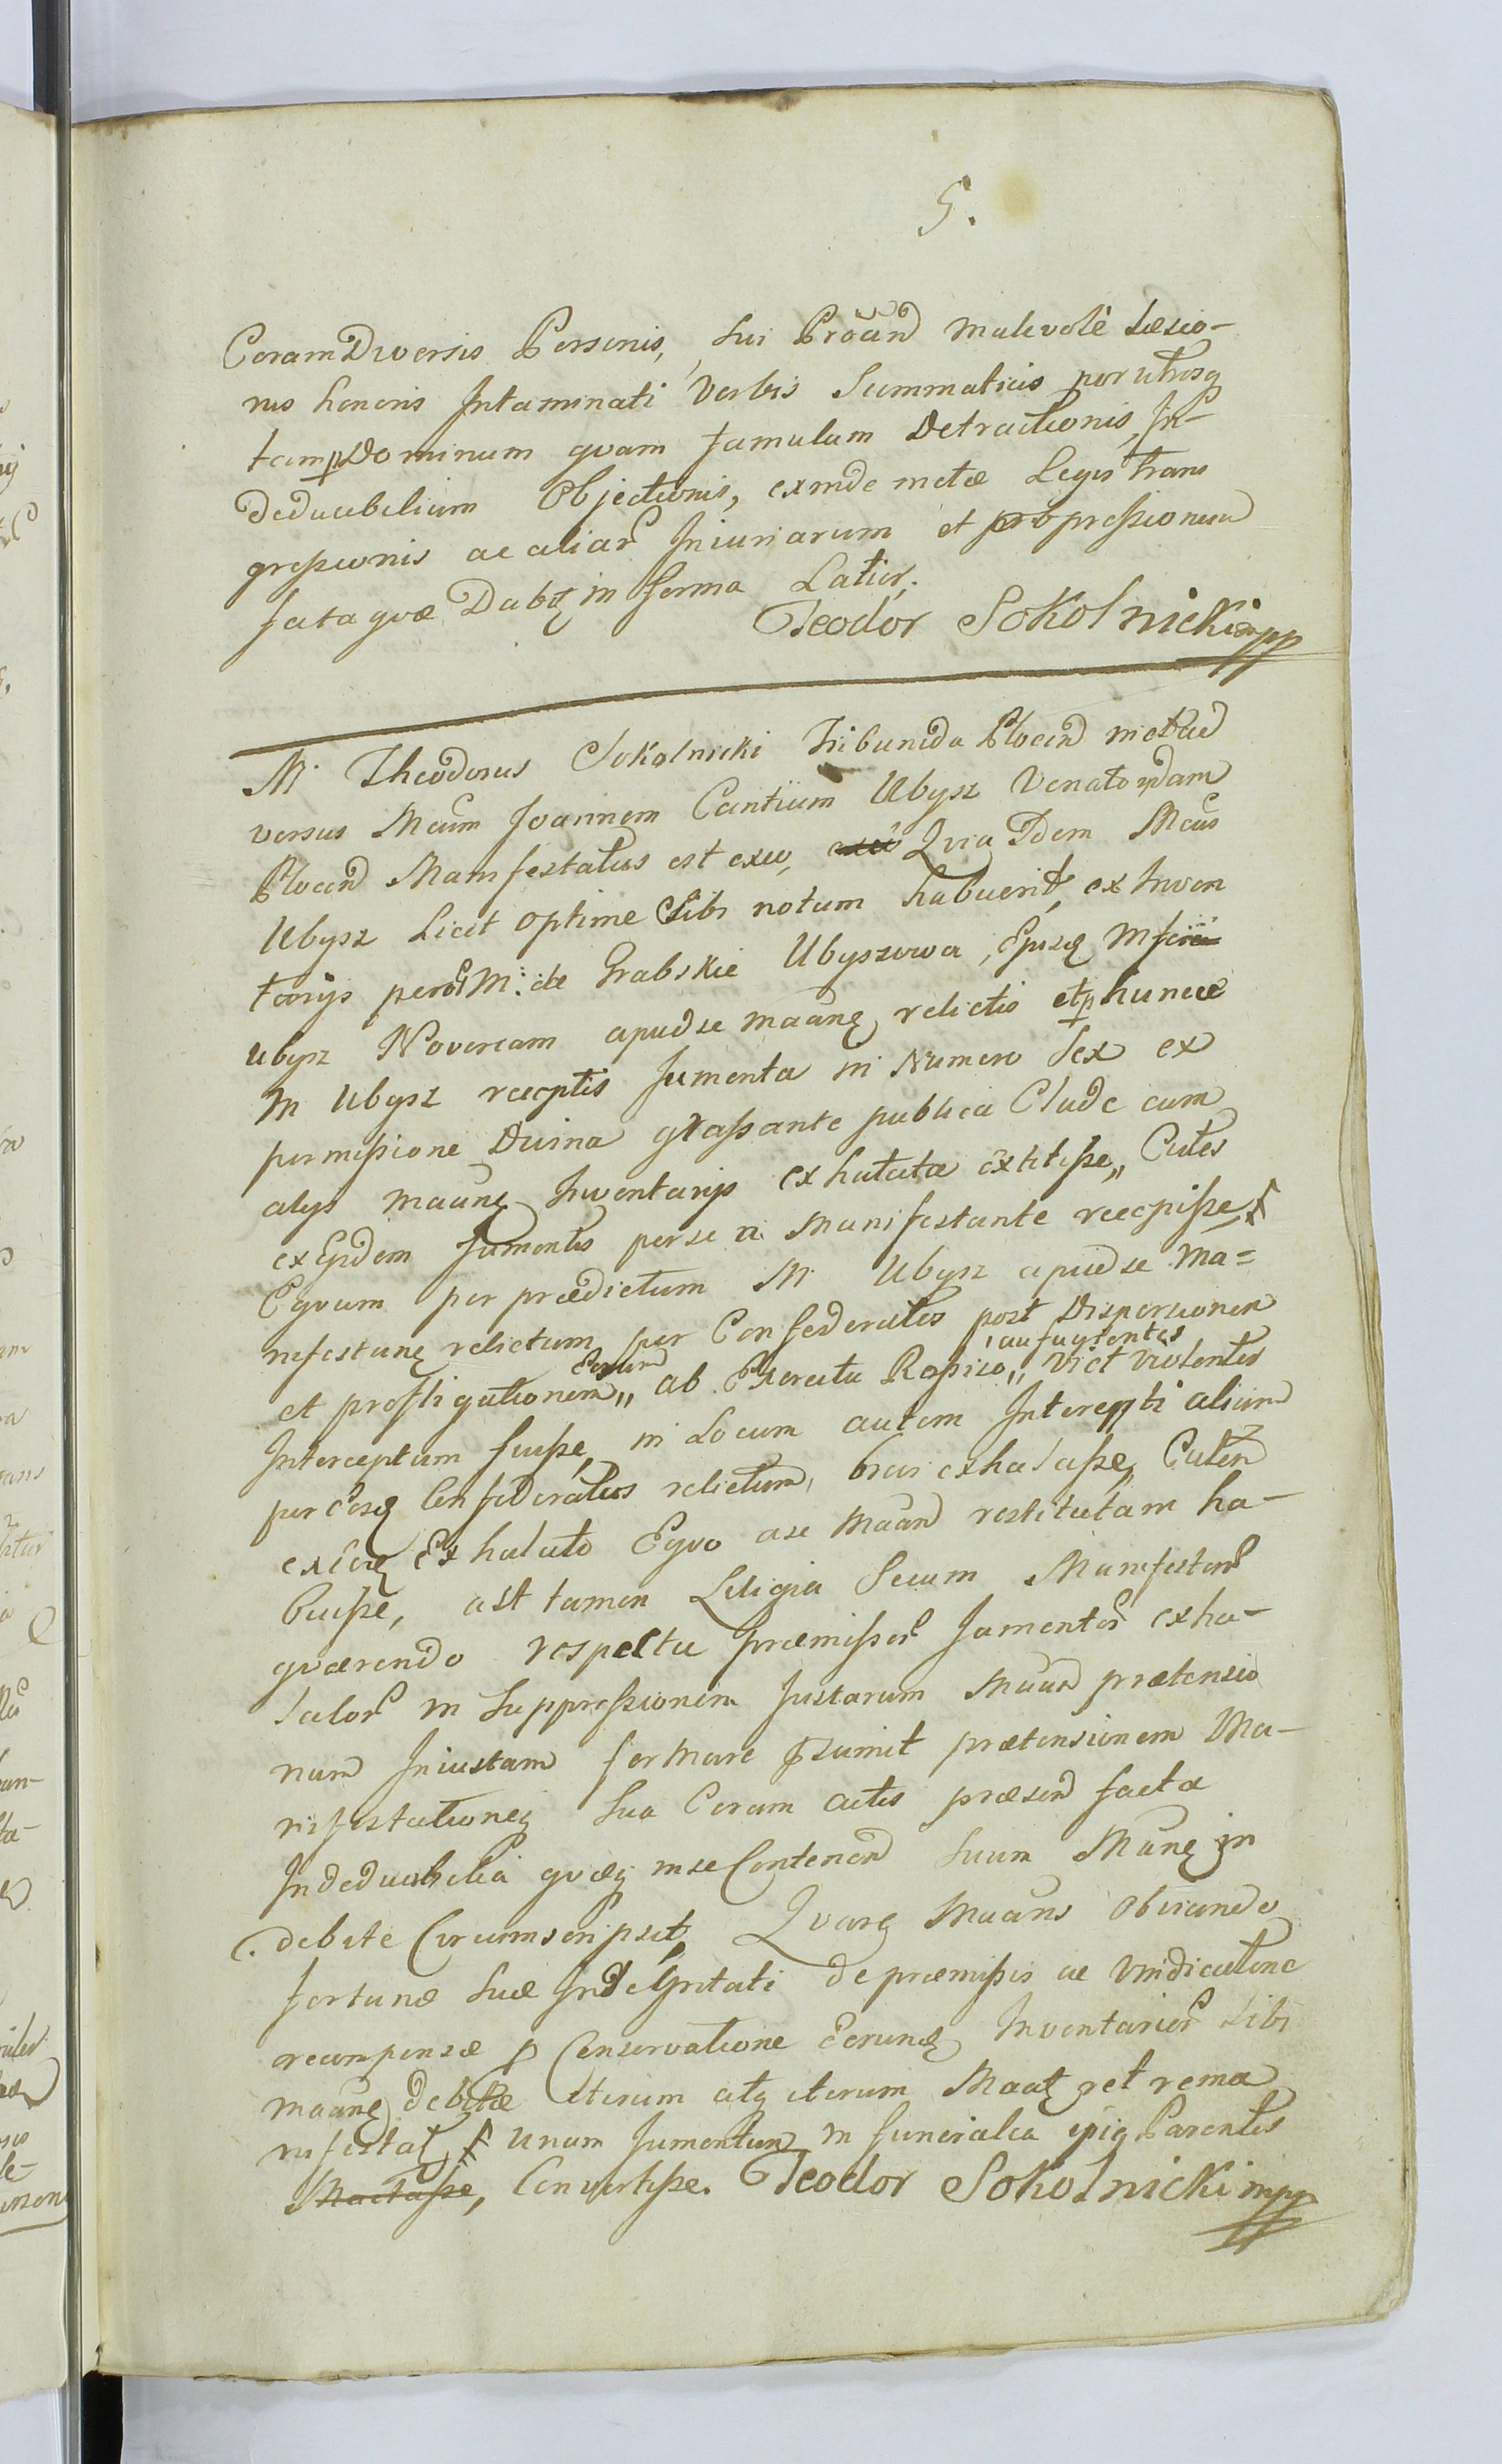 5.
Coram Diversis Personis, sui Proand malevolè Læsio-
nis honoris Intaminati Verbis Summaticis per utrosq
tam p Dominum qvam famulum Detractionis, In-
deducibilium Objectionis, exinde metæ Legis trans
gressionis ac aliar Iniuriarum et oppressionum
fata qvæ Dabt in forma Latior.
Teodor Sokolnicki mpp
M. Theodorus Sokolnicki Tribunida Plocen
versus Mcum Joannem Cantium Ubysz Venatoridam
Plocen Manifestatus est exeo, Qvia Idem Mcus
Ubysz Licet optime Sibi notum habuerit, ex Inven
torijs per M: de Grabskie Ubyszowa, Ejusq
Ubysz Novercam apud se maang relictis et p hunce
M Ubysz receptis Jumenta in Numero Sex ex
permissione Divina grassante publica Clade cum
alys maang Inventarijs exhalata extitisse, Cutes
ex Ejsdem Jumentis per se a Manifestante recepisse
Eqvum per prædictum M. Ubysz apud se Ma=
nifestang relictum per Confederatos post Dispersionem
et profligationem Eorum ab Exercitu Rossico, aufugientes Vi et Violenter
Interceptum fuisse, in Locum autem Intercepti alium
per eosq Confederatos relictum, exhalasse, Cutem
ex eoq Exhalato Eqvo a se Maand restitutam ha-
buisse, ast tamen Litigia Secum Manifestan
qværendo respectu præmissor Jumentor exha-
lator in Suppressionem Justarum Maand prætensio
num Iniustam formare præsumit prætensionem Ma-
nifestationeq Sua Coram actis præsend facta
Indeducibilia qvæq in se Continen Suum Mang in
debite Circumscripsit, Qvare Maans obviando
fortunæ Suæ Indemnitati de præmissis ac vindicatione
recompensæ p Conservatione Eorunq Inventarior Sibi
maang debitæ Iterum atq iterum Maat et rema
nifestat, Unum Jumentum in funeralia Parentis
Mactasse, Convertisse. Teodor Sokolnicki mpp